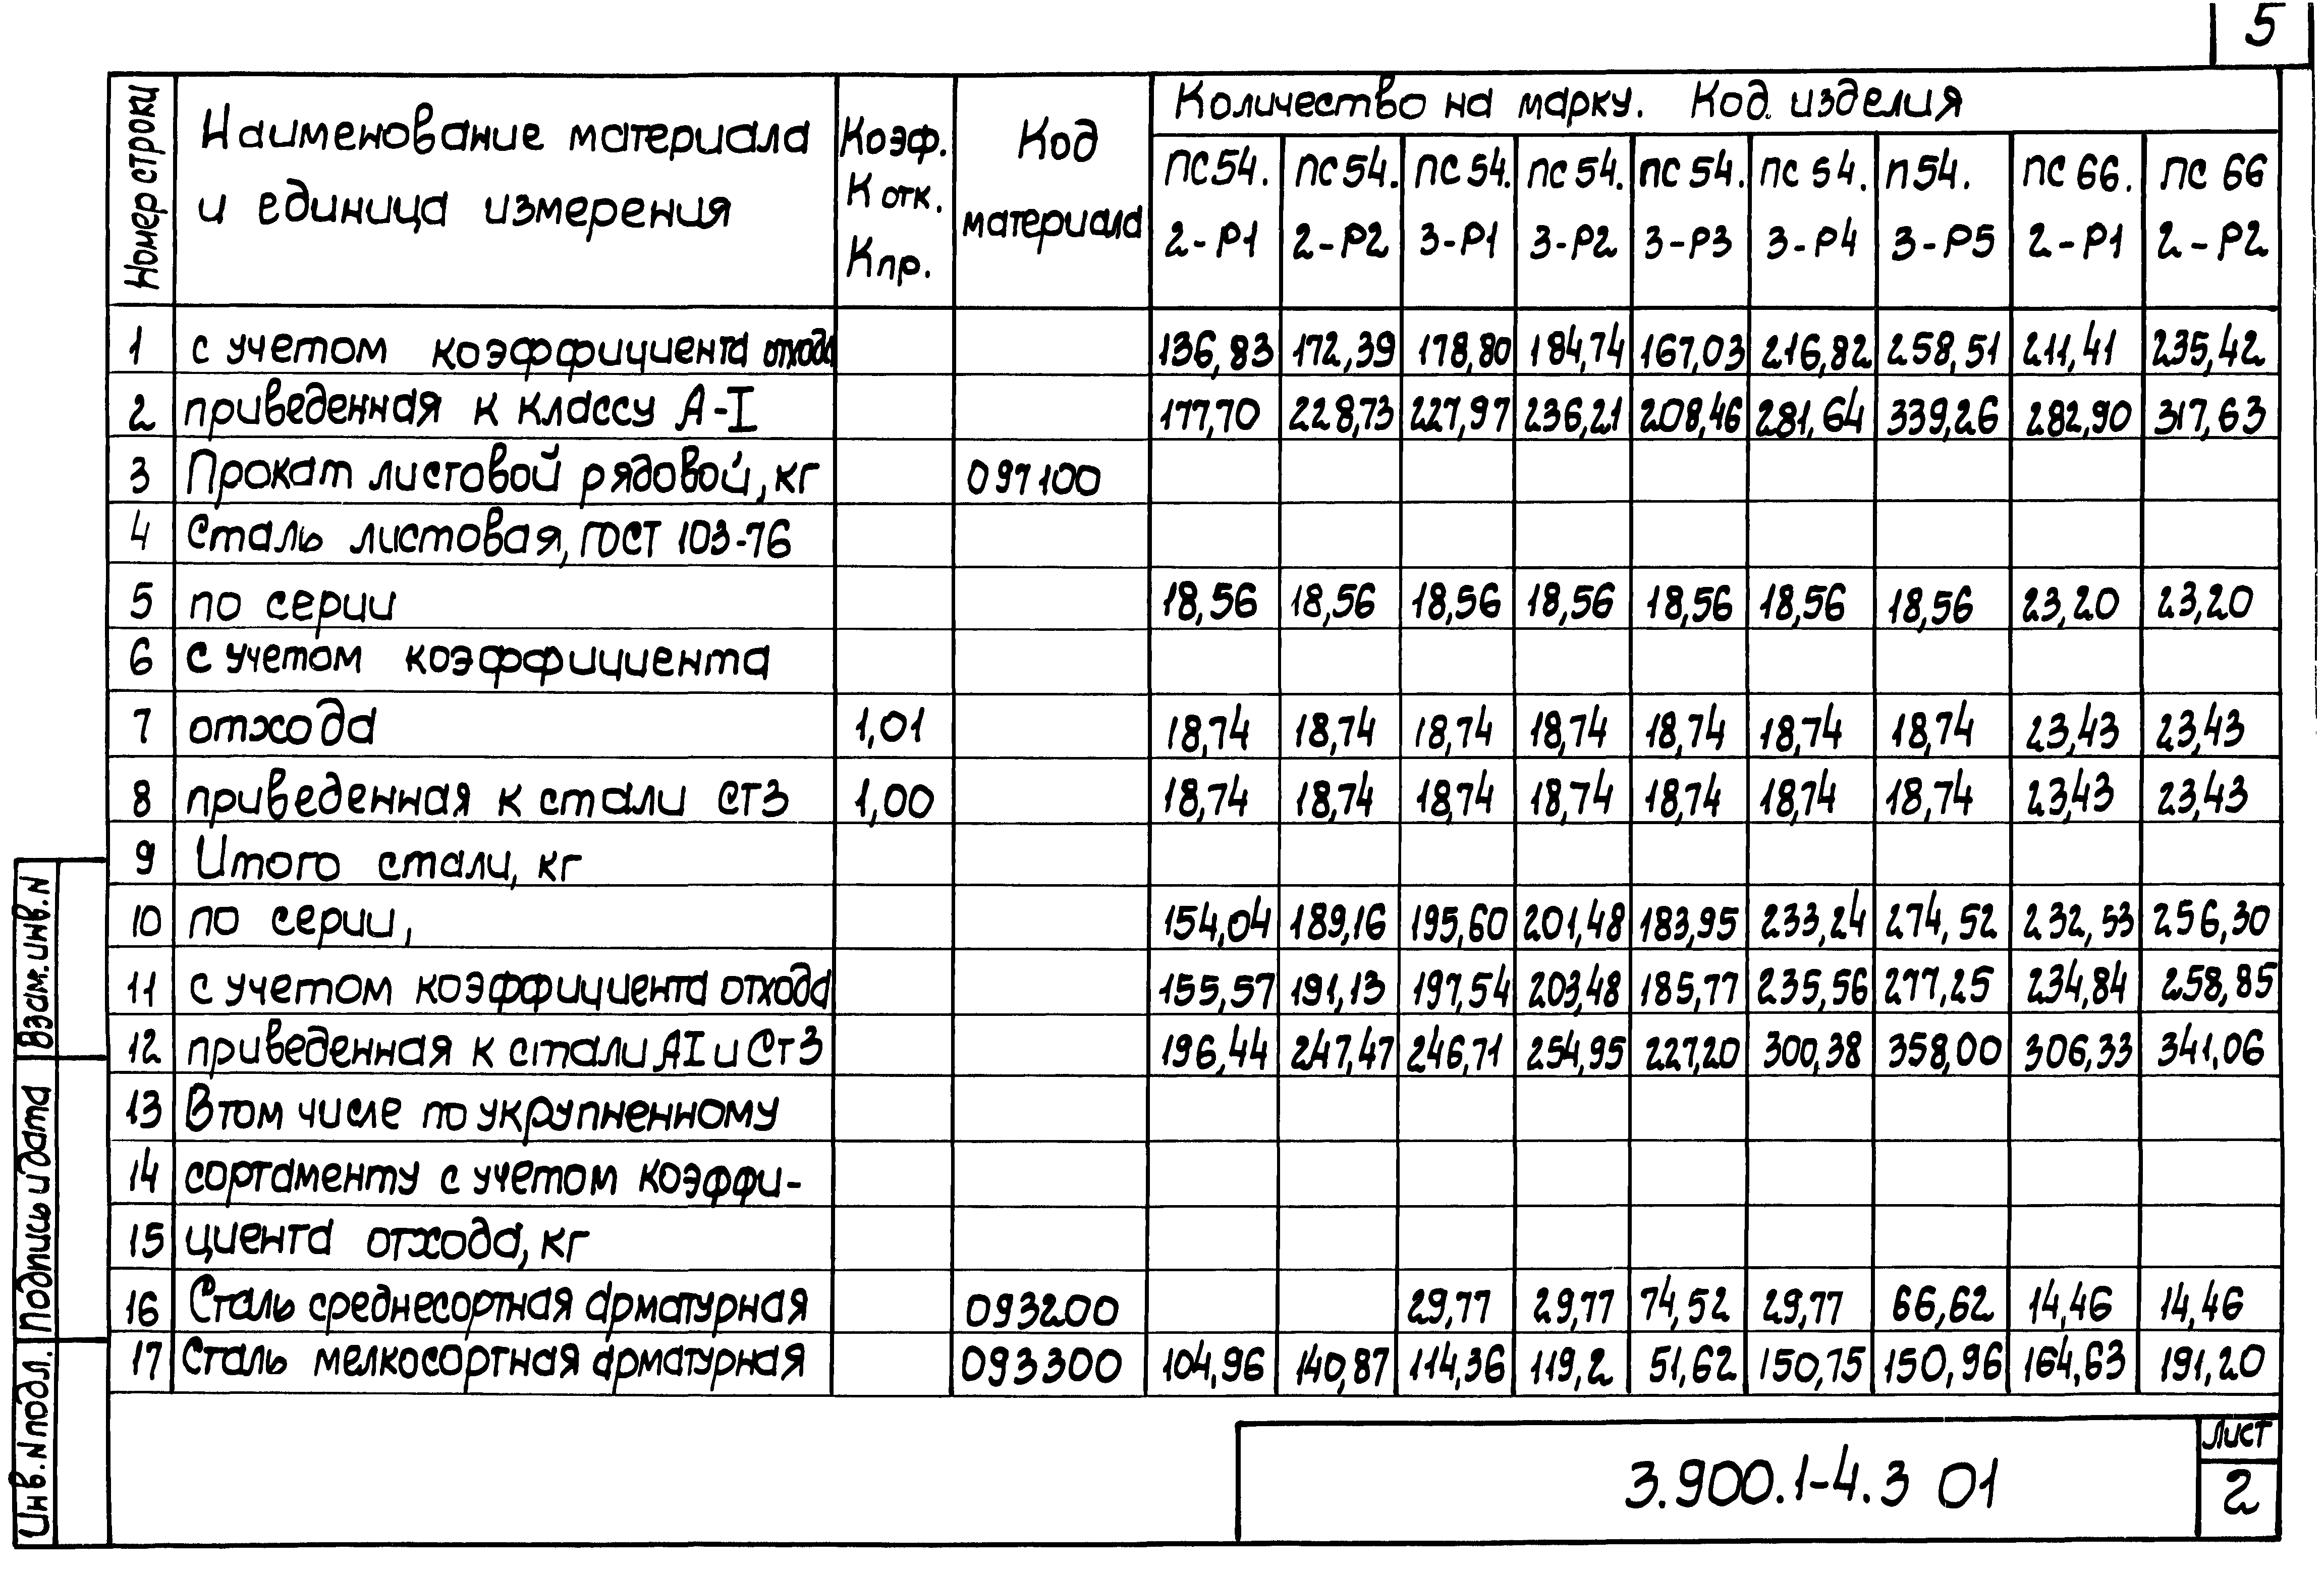 5
Номер строки
Наименование материала
и единица измерения
Коэф.
К отк.
Кпр.
Код
материала
Количество на марку. Код изделия
ПС54. ПС54. ПС54. ПС54. ПС54. ПС54. П54. ПС66. ПС66
2-Р1 2-Р2 3-Р1 3-Р2 3-Р3 3-Р4 3-Р5 2-Р1 2-Р2
1 с учетом коэффициента отхода 136,83 172,39 178,80 184,74 167,03 216,82 258,51 211,41 235,42
2 приведенная к классу А-I 177,70 228,73 227,97 236,21 208,46 281,64 339,26 282,90 317,63
3 Прокат листовой рядовой, кг 097100
4 Сталь листовая, ГОСТ 103-76
5 по серии 18,56 18,56 18,56 18,56 18,56 18,56 18,56 23,20 23,20
6 с учетом коэффициента
7 отхода 1,01 18,74 18,74 18,74 18,74 18,74 18,74 18,74 23,43 23,43
8 приведенная к стали Ст3 1,00 18,74 18,74 18,74 18,74 18,74 18,74 18,74 23,43 23,43
9 Итого стали, кг
10 по серии, 154,04 189,16 195,60 201,48 183,95 233,24 274,52 232,53 256,30
11 с учетом коэффициента отхода 155,57 191,13 197,54 203,48 185,77 235,56 277,25 234,84 258,85
12 приведенная к стали АI и Ст3 196,44 247,47 246,71 254,95 227,20 300,38 358,00 306,33 341,06
13 В том числе по укрупненному
14 сортаменту с учетом коэффи-
15 циента отхода, кг
16 Сталь среднесортная арматурная 093200 29,77 29,77 74,52 29,77 66,62 14,46 14,46
17 Сталь мелкосортная арматурная 093300 104,96 140,87 114,36 119,2 51,62 150,75 150,96 164,63 191,20
Взам. инв. N
Подпись и дата
Инв. N подл.
3.900.1-4.3 01
Лист
2